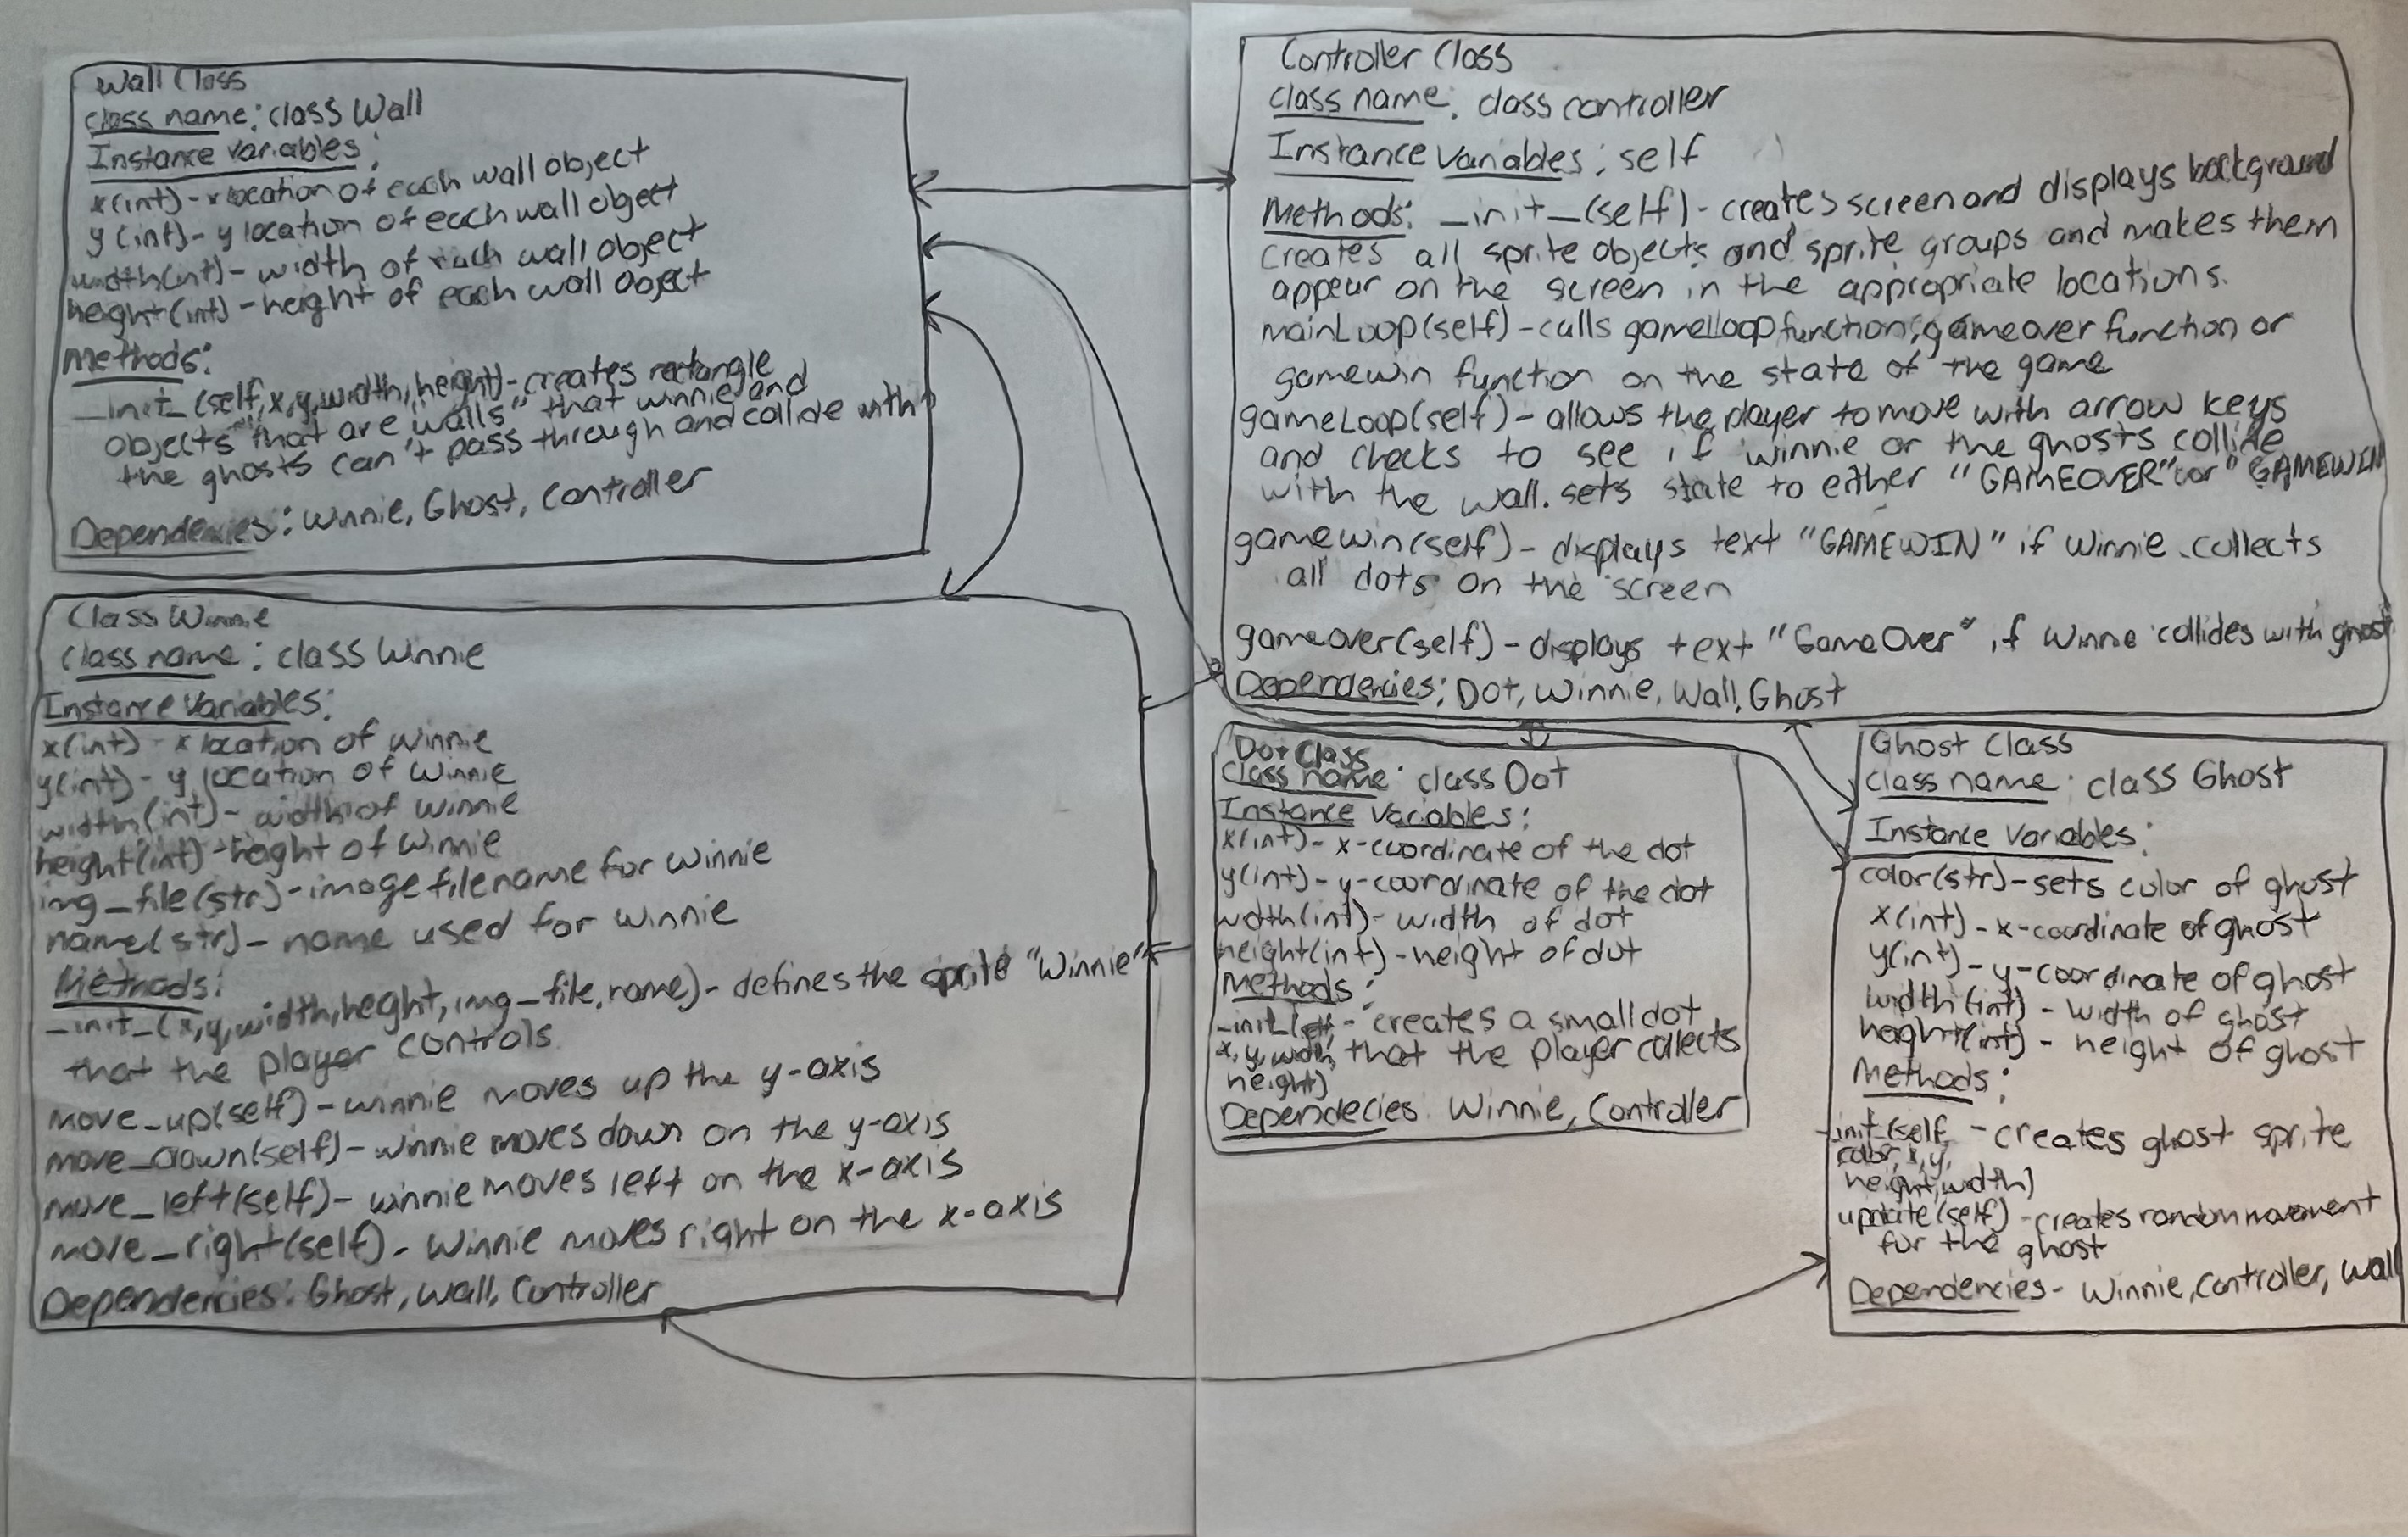 Wall Class
class name: class Wall
Instance variables:
x(int)-x location of each wall object
y(int)-y location of each wall object
width(int)-width of each wall object
height(int)-height of each wall object
Methods:
_init_(self,x,y,width,height)-creates rectangle
objects "that are walls" that winnie and
the ghosts can't pass through and collide with
Dependencies: Winnie, Ghost, Controller
Class Winnie
Class name: class Winnie
Instance Variables:
x(int)-x location of Winnie
y(int)-y location of Winnie
width(int)-width of Winnie
height(int)-height of Winnie
img_file(str)-image filename for Winnie
name(str)-name used for Winnie
Methods:
_init_(x,y,width,height,img_file,name)-defines the sprite "Winnie"
that the player controls
move_up(self)-winnie moves up the y-axis
move_down(self)-winnie moves down on the y-axis
move_left(self)-winnie moves left on the x-axis
move_right(self)-winnie moves right on the x-axis
Dependencies: Ghost, Wall, Controller
Controller Class
class name: class controller
Instance Variables: self
Methods: _init_(self)-creates screen and displays background
creates all sprite objects and sprite groups and makes them
appear on the screen in the appropriate locations.
mainLoop(self)-calls gameLoop function, gameover function or
gamewin function on the state of the game
gameLoop(self)-allows the player to move with arrow keys
and checks to see if winnie or the ghosts collide
with the wall. sets state to either "GAMEOVER" or "GAMEWIN
gamewin(self)-displays text "GAMEWIN" if Winnie collects
all dots on the screen
gameover(self)-displays text "GameOver" if Winnie collides with ghost
Dependencies: Dot, Winnie, Wall, Ghost
Dot Class
Class name: class Dot
Instance Variables:
x(int)-x-coordinate of the dot
y(int)-y-coordinate of the dot
width(int)-width of dot
height(int)-height of dot
Methods:
_init_(self, - creates a small dot
x, y, width, that the player collects
height)
Dependecies: Winnie, Controller
Ghost Class
class name: class Ghost
Instance Variables:
color(str)-sets color of ghost
x(int)-x-coordinate of ghost
y(int)-y-coordinate of ghost
width(int)-width of ghost
height(int)-height of ghost
Methods:
_init_(self, -creates ghost sprite
color, x, y,
height, width)
update(self)-creates random movement
for the ghost
Dependencies- Winnie, Controller, Wall